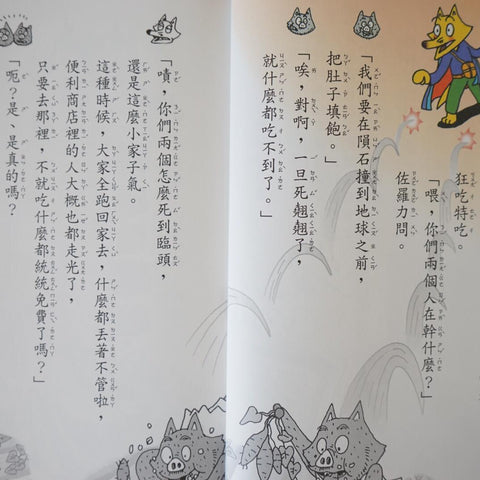 狂吃特吃。
「喂，你們兩個人在幹什麼？」
佐羅力問。
「我們要在隕石撞到地球之前，
把肚子填飽。」
「唉，對啊，一旦死翹翹了，
就什麼都吃不到了。」
「嘖，你們兩個怎麼死到臨頭，
還是這麼小家子氣。
這種時候，大家全跑回家去，什麼都丟著不管啦，
便利商店裡的人大概也都走光了，
只要去那裡，不就吃什麼都統統免費了嗎？」
「呃？是、是真的嗎？」